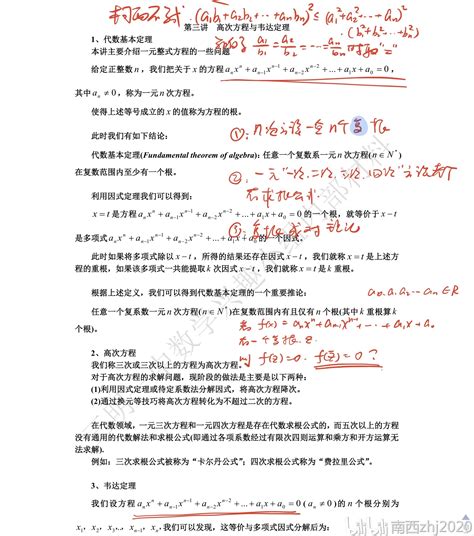 柯西不等式.(a₁b₁+a₂b₂+⋯+aₙbₙ)²≤(a₁²+a₂²+⋯+aₙ²)
·(b₁²+b₂²+⋯+bₙ²),
a₁/b₁=a₂/b₂=⋯=aₙ/bₙ时取"="
第三讲 高次方程与韦达定理
1、代数基本定理
本讲主要介绍一元整式方程的一些问题
给定正整数 n，我们把关于 x 的方程 aₙxⁿ+aₙ₋₁xⁿ⁻¹+aₙ₋₂xⁿ⁻²+...+a₁x+a₀=0，
其中 aₙ≠0，称为一元 n 次方程。
使得上述等号成立的 x 的值称为方程的根。
此时我们有如下结论：
①：n次方程一定n个复根
代数基本定理(Fundamental theorem of algebra)：任意一个复数系一元 n 次方程(n∈N*)
在复数范围内至少有一个根。
②：一元"一次、二次、三次、四次"方程都
有求根公式.
利用因式定理我们可以得到：
x=t 是方程 aₙxⁿ+aₙ₋₁xⁿ⁻¹+aₙ₋₂xⁿ⁻²+...+a₁x+a₀=0 的一个根，就等价于 x-t
③：复根成对
是多项式 aₙxⁿ+aₙ₋₁xⁿ⁻¹+aₙ₋₂xⁿ⁻²+...+a₁x+a₀ 的一个因式。
此时如果将多项式除以 x-t，所得的结果还存在因式 x-t，我们就称 x=t 是上述方
程的重根，如果该多项式一共能提取 k 次因式 x-t，我们就称 x=t 是 k 重根。
根据上述定义，我们可以得到代数基本定理的一个重要推论：
a₀.a₁.a₂⋯aₙ∈R
任意一个复系数一元 n 次方程(n∈N*)在复数范围内有且仅有 n 个根(其中 k 重根算 k
个根)。
若 f(x)=aₙxⁿ+aₙ₋₁xⁿ⁻¹+⋯+a₁x+a₀
有一个复根 z.
则 f(z)=0. f(z̄)=0？
2、高次方程
我们称三次或三次以上的方程为高次方程。
对于高次方程的求解问题，现阶段的做法是主要是以下两种：
(1)利用因式定理或待定系数法分解因式，将高次方程降次。
(2)通过换元等技巧将高次方程转化为不超过二次的方程。
在代数领域，一元三次方程和一元四次方程是存在代数求根公式的，而五次以上的方程
没有通用的代数解法和求根公式(即通过各项系数经过有限次四则运算和乘方和开方运算无
法求解).
例如：三次求根公式被称为"卡尔丹公式"；四次求根公式称为"费拉里公式"。
3、韦达定理
我们设方程 aₙxⁿ+aₙ₋₁xⁿ⁻¹+aₙ₋₂xⁿ⁻²+...+a₁x+a₀=0(aₙ≠0)的 n 个根分别为
x₁，x₂，x₃,..，xₙ，我们可以发现，这等价与多项式因式分解后为：
南西zhj2020